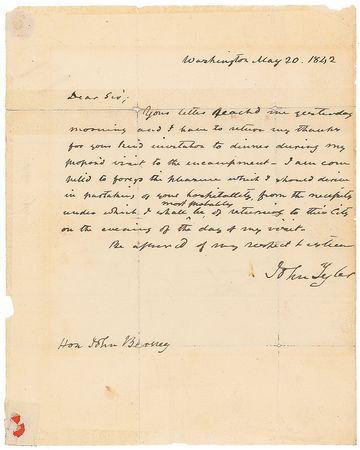 Washington May 20. 1842
Dear Sir;
Your letter reach'd me yesterday
morning and I have to return my thanks
for your kind invitation to dinner during my
propos'd visit to the encampment - I am com
pelld to forego the pleasure which I should derive
in partaking of your hospitality, from the necessity
most probably
under which I shall be, of returning to this City
on the evening of the day of my visit.
Be assured of my respect & esteem
John Tyler
Hon John